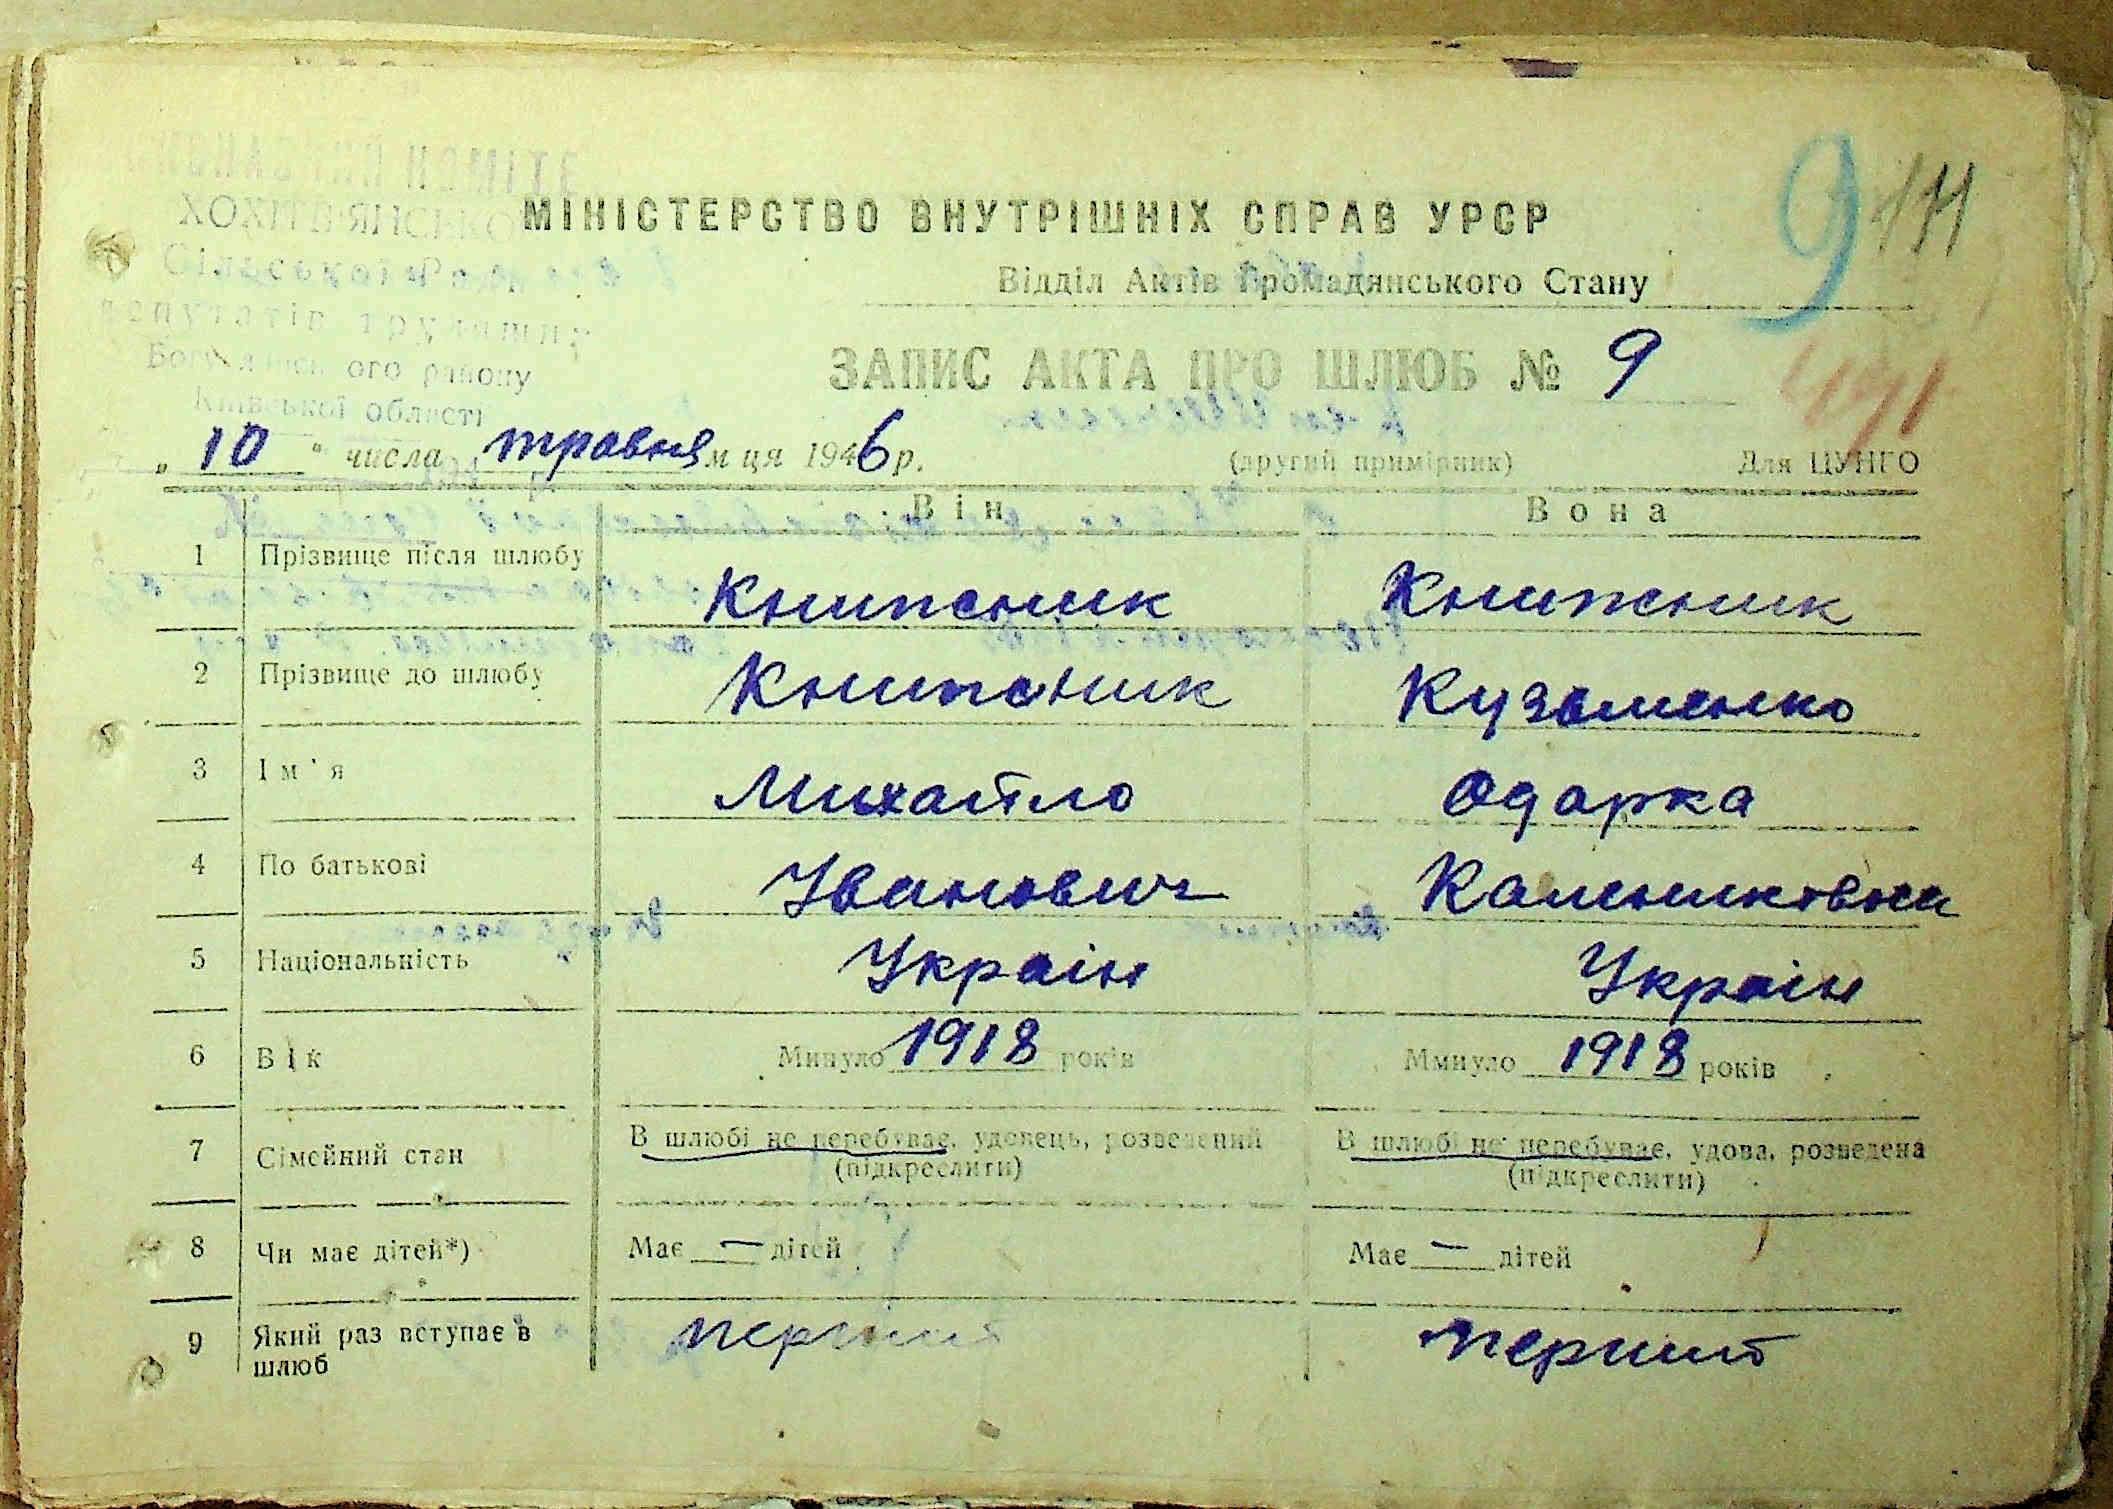 9
МІНІСТЕРСТВО ВНУТРІШНІХ СПРАВ УРСР
Сільської Ради
депутатів трудящих
Відділ Актів Громадянського Стану
Богуславського району
Київської області
ЗАПИС АКТА ПРО ШЛЮБ № 9
„ 10 " числа травня м ця 1946 р.
(другий примірник) Для ЦУНГО
Він Вона
1 Прізвище після шлюбу Книжник Книжник
2 Прізвище до шлюбу Книжник Кузьменко
3 Ім'я Михайло Одарка
4 По батькові Іванович Калениковна
5 Національність Украін Украін
6 Вік Минуло 1918 років Ммнуло 1918 років
7 Сімейний стан В шлюбі не перебуває, удовець, розведений (підкреслити) В шлюбі не перебуває, удова, розведена (підкреслити)
8 Чи має дітей*) Має — дітей Має — дітей
9 Який раз вступає в шлюб перший перший